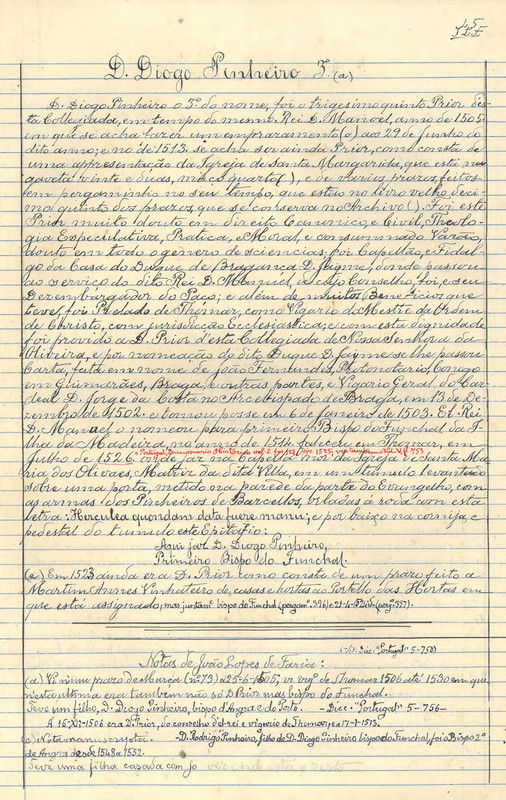 45
D. Diogo Pinheiro I. (a)
D. Diogo Pinheiro o 1º do nome, foi o trigesimo quinto Prior des-
ta Collegiada, em tempo do mesmo Rei D. Manoel, anno de 1505
em que se acha fazer um emprazamento (o) aos 29 de Junho do
dito anno; e no de 1513 se acha ser ainda Prior, como consta de
uma appresentação da Igreja de Santa Margarida, que está na
gaveta trinta e duas, maço quarto ( ), e de varios prazos, feitos
em pergaminho no seu tempo, que estão no livro velho, deci-
mo quinto dos prazos, que se conserva no Archivo ( ). Foi este
Prior muito douto em direito Canonico, e Civil, Theolo-
gia Especulativa, Pratica, e Moral, e consummado Varão,
douto em todo o genero de sciencias; foi Capellão, e Fidal-
go da Casa do Duque de Bragança D. Jayme, donde passou
ao serviço do dito Rei D. Manuel, a cujo Conselho, foi, e seu
Dezembargador do Paço; e além de muitos Beneficios que
teve, foi Prelado de Thomar, como Vigario do Mestre da Ordem
de Christo, com jurisdicção Ecclesiastica; e com esta dignidade
foi provido a D. Prior d'esta Collegiada de Nossa Senhora da
Oliveira, e por nomeação do dito Duque D. Jayme se lhe passou
Carta, feita em nome de João Fernandes, Protonotario, Conego
em Guimarães, Braga, e outras partes, e Vigario Geral do Car-
deal D. Jorge da Costa no Arcebispado de Braga, em 13 de De-
zembro de 1502. e tomou posse em 6 de Janeiro de 1503. El-Rei
D. Manuel o nomeou para primeiro Bispo do Funchal da I-
lha da Madeira, no anno de 1514. faleceu em Thomar, em
Julho de 1526. onde jaz na Capella Mór da Igreja de Santa Ma-
ria dos Olivaes, Matriz da dita Villa, em um tumulo levantado
sobre uma porta, metido na parede da parte do Evangelho, com
as armas dos Pinheiros de Barcellos, orladas á roda com esta
letra: Herculea quondam data fuere manu; e por baixo na cornija, e
pedestal do tumulo este Epitafio:
Aqui jaz D. Diogo Pinheiro,
Primeiro Bispo do Funchal.
(o) Em 1523 ainda era D. Prior como consta de um prazo feito a
Martim Annes Vinhateiro, de casas e hortas ao Portello das Hortas em
que está assignado, mas juntamte bispo do Funchal (pergamo 396)
Notas de João Lopes de Faria:
(a) Vi n'um prazo de Murça (nº 79) a 25-6-1505, vi vigo de Thomar 1506 até 1530 em que
nesta ultima era tambem não só D. Prior mas bispo do Funchal.
Teve um filho, D. Diogo Pinheiro, bispo d'Angra e do Porto. - Dicc. "Portugal" 5-756-
A 16-XII-1506 era D. Prior, do conselho d'el-rei e vigario de Thomar, e a 17-1-1513.
- D. Rodrigo Pinheiro, filho de D. Diogo Pinheiro bispo do Funchal, foi o Bispo 2º
de Angra desde 1548 a 1552.
Teve uma filha casada com